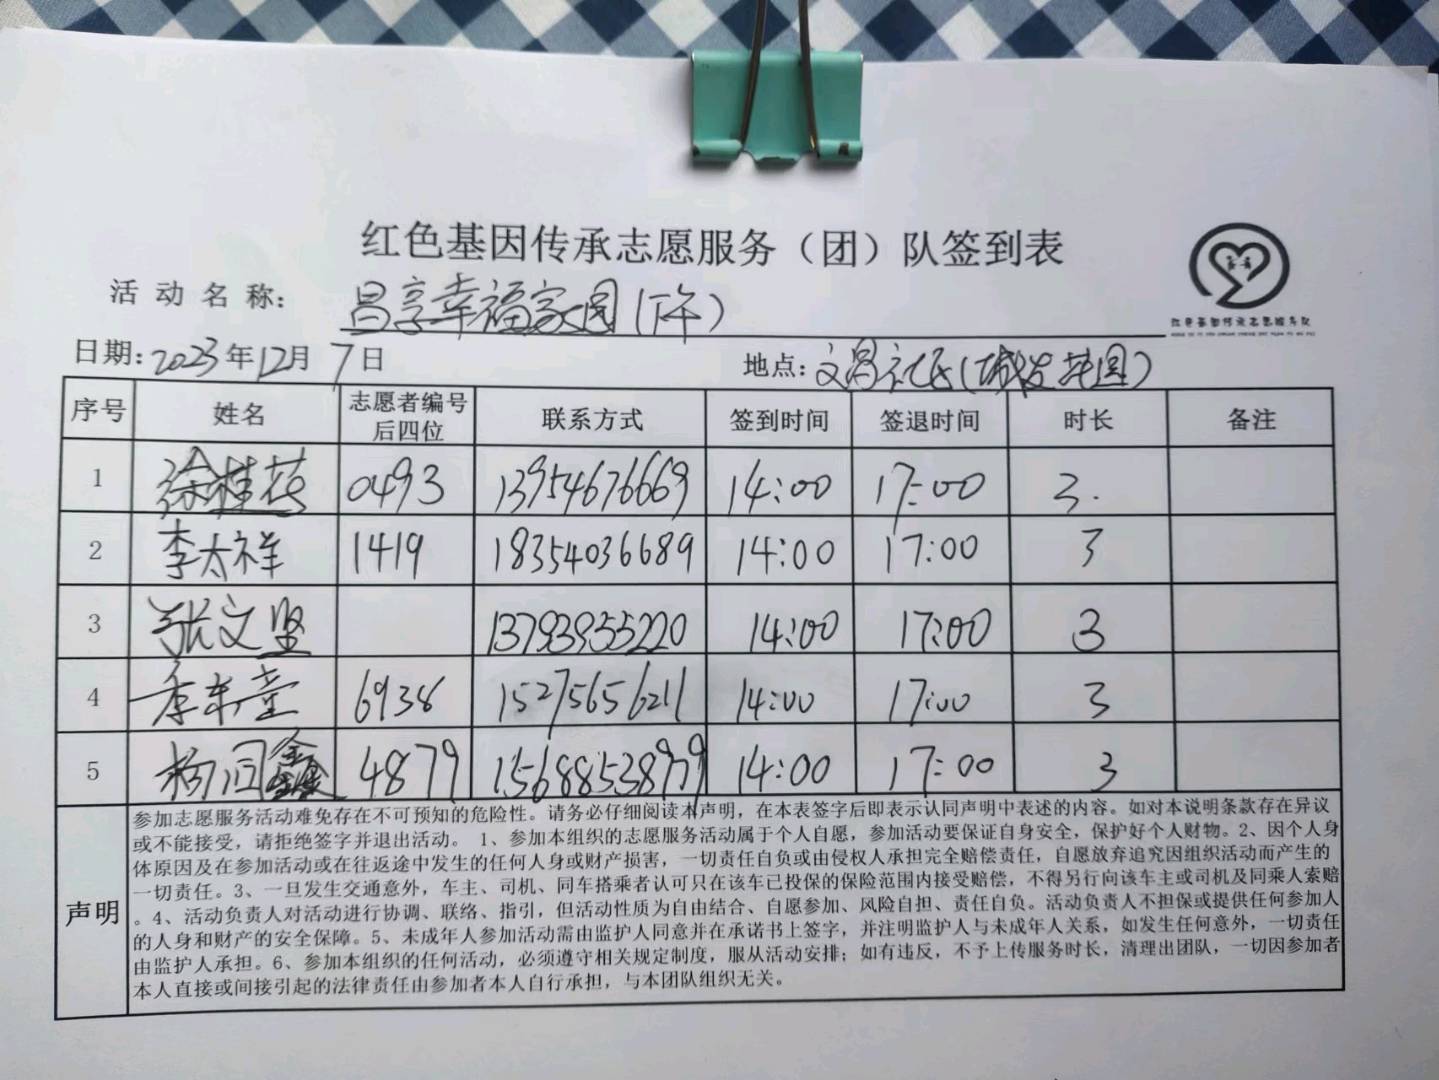 红色基因传承志愿服务（团）队签到表
活动名称：昌享幸福家园(下午)
日期：2023年12月7日 地点：文昌社区(城发桂园)
序号 姓名 志愿者编号后四位 联系方式 签到时间 签退时间 时长 备注
1 徐桂花 0493 13954676669 14:00 17:00 3.
2 李太祥 1419 18354036689 14:00 17:00 3
3 张文坚 13793955220 14:00 17:00 3
4 6938 15275656211 14:00 17:00 3
5 杨闫鑫 4879 15688538979 14:00 17:00 3
声明
参加志愿服务活动难免存在不可预知的危险性。请务必仔细阅读本声明，在本表签字后即表示认同声明中表述的内容。如对本说明条款存在异议
或不能接受，请拒绝签字并退出活动。 1、参加本组织的志愿服务活动属于个人自愿，参加活动要保证自身安全，保护好个人财物。2、因个人身
体原因及在参加活动或在往返途中发生的任何人身或财产损害，一切责任自负或由侵权人承担完全赔偿责任，自愿放弃追究因组织活动而产生的
一切责任。3、一旦发生交通意外，车主、司机、同车搭乘者认可只在该车已投保的保险范围内接受赔偿，不得另行向该车主或司机及同乘人索赔
。4、活动负责人对活动进行协调、联络、指引，但活动性质为自由结合、自愿参加、风险自担、责任自负。活动负责人不担保或提供任何参加人
的人身和财产的安全保障。5、未成年人参加活动需由监护人同意并在承诺书上签字，并注明监护人与未成年人关系，如发生任何意外，一切责任
由监护人承担。6、参加本组织的任何活动，必须遵守相关规定制度，服从活动安排；如有违反，不予上传服务时长，清理出团队，一切因参加者
本人直接或间接引起的法律责任由参加者本人自行承担，与本团队组织无关。